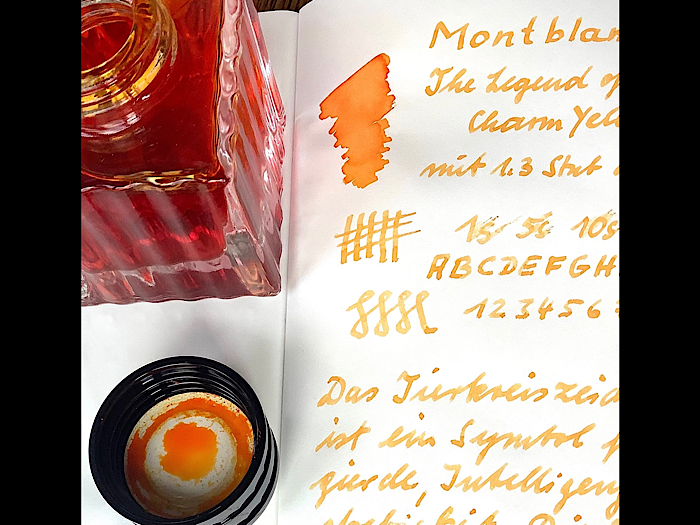 Montblan
The Legend of
Charm Yell
mit 1.3 Stub
1s 5s 10s
ABCDEFGH
123456
Das Tierkreiszeic
ist ein Symbol
gierde, Intelligenz